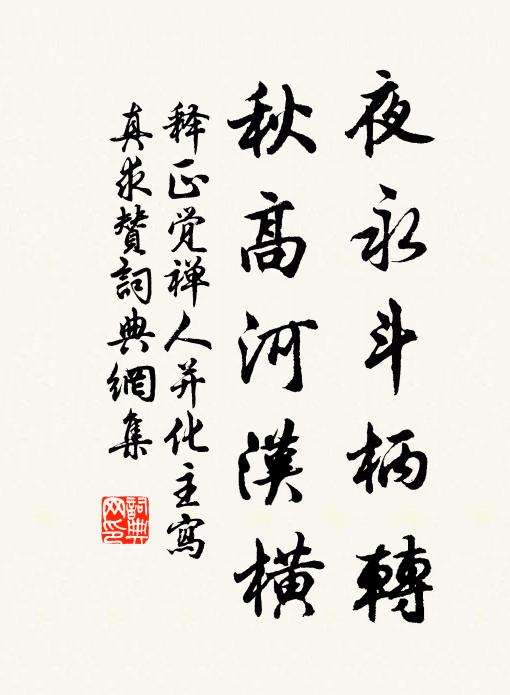 夜永斗柄轉
秋高河漢橫
释正觉禅人并化主寫
真求贊詞典網集
詞典網印